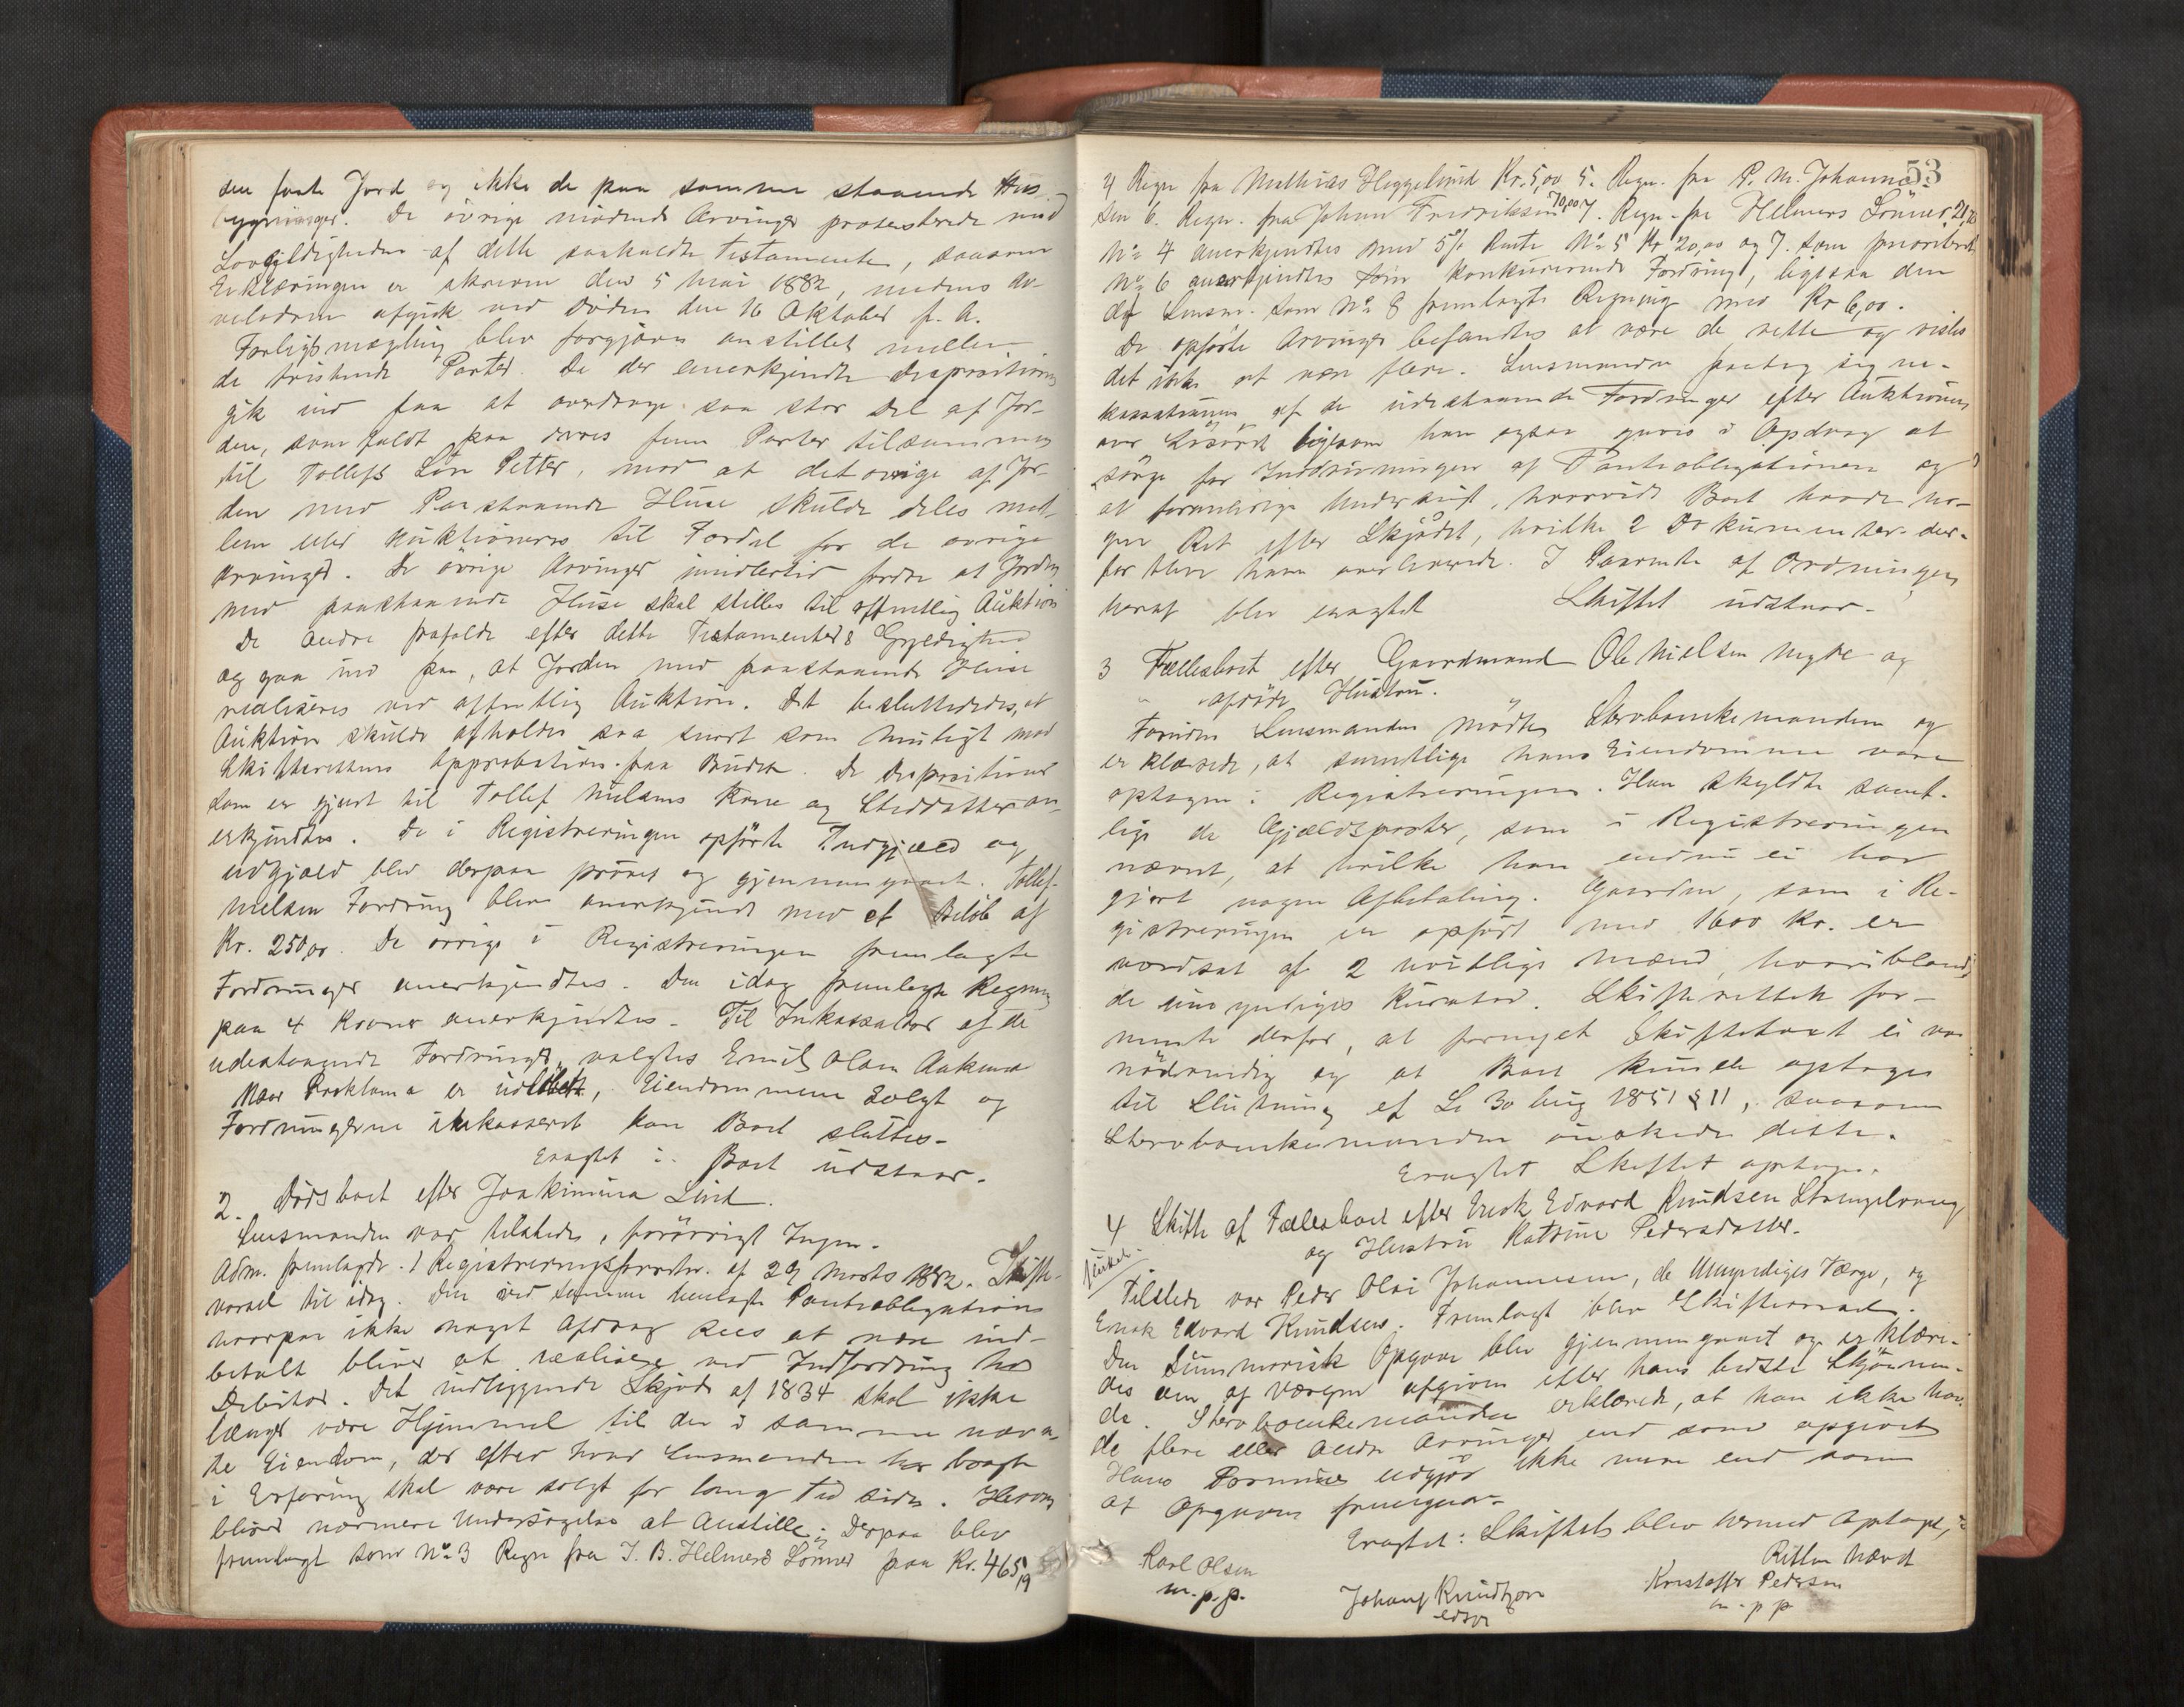 den faste Jord og ikke de paa samme staaende Hus-
bygninger. De övrige mödende Arvinger protesterede mod
Lovgyldigheden af dette saakaldte Testamente, saasom
Erklæringen er skreven den 5 Mai 1882, medens Ar-
veladeren afgik ved Döden den 16 Oktober f. A.
Forligsmægling blev forgjæves anstillet mellem
de tvistende Parter. De der anerkjendte Dispositionen
gik ind paa at overdrage saa stor Del af Jor-
den, som faldt paa deres fem Parter tilsammen
til Tollefs Sön Petter, mod at det övrige af Jor-
den med Paastaaende Huse skulde deles mel-
lem eller auktioneres til Fordel for de övrige
Arvinger. De övrige Arvinger imidlertid fordre at Jorden
med paastaaende Huse skal stilles til offentlig Auktion
De andre frafaldt efter dette Testamentets Gyldighed
og gaa ind paa, at Jorden med paastaaende Huse
realiseres ved offentlig Auktion. Det besluttedes, at
Auktion skulde afholdes saa snart som muligt med
Skifterettens Approbation paa Budet. De Dispositioner
som er gjort til Tollef Nielsens Kone og Steddatter an-
erkjendtes. De i Registreringen opförte Indgjæld og
udgjæld blev derpaa prövet og gjennemgaaet. Tollef
Nielsen Fordring blev anerkjendt med et Belöb af
Kr. 250,00. De övrige i Registreringen fremlagte
Fordringer anerkjendtes. Den idag fremlagte Regning
paa 4 Kroner anerkjendtes. Til Inkassator af de
udestaaende Fordringer valgtes Emil Olsen
Naar Proklama er udlöbet, Eiendommene solgt og
Fordringerne inkasseret kan Boet sluttes.
Eragtet: Boet udstaar.
2. Dödsboet efter Joakimina Lind.
Lensmanden var tilstede, forövrigt Ingen.
Adm. fremlagde 1 Registreringsforretn. af 29 Marts 1882. Skifte-
varsel til idag. Den ved samme henlagte Pantobligation
hvorpaa ikke noget Afdrag sees at være ind-
betalt bliver at realisere ved Indfordring hos
Debitor. Det vedliggende Skjöde af 1834 skal ikke
længer være Hjemmel til den i samme nævn-
te Eiendom, der efter hvad Lensmanden har bragt
i Erfaring skal være solgt for lang Tid siden. Herom
bliver nærmere Undersögelse at anstille. Derpaa blev
fremlagt som No 3 Regn fra I. B. Helmers Sönner paa Kr. 465,19
53
4 Regn fra Mathias Heggelund Kr. 5,00 5. Regn. fra P. M. Johanne-
sen 6. Regn. fra Johan Fredriksen 70,00 7. Regn. fra Helmers Sönner
No 4 anerkjendtes med 5% Rente No 5 Kr 20,00 og 7. som prioriteret
No 6 anerkjendtes som konkurerende Fordring, ligesaa den
af Lensm. som No 8 fremlagte Regning med Kr 6,00.
De opförte Arvinger befandtes at være de rette og vistes
det ikke at være flere. Lensmanden paatog sig In-
kassationen af de udestaaende Fordringer efter Auktionen
over Lösöre ligesom han ogsaa gaves i Opdrag at
sörge for Inddrivningen af Pantobligationen og
at foranledige undersögt, hvorvidt Boet havde no-
gen Ret efter Skjödet, hvilke 2 Dokumenter der-
for blev ham overleveret. I Paavente af Ordningen
heraf blev eragtet Skiftet udstaar.
3 Fællesboet efter Gaardmand Ole Nielsen og
afdöde Hustru.
Foruden Lensmanden mödte Stervboenkemanden og
erklærede, at samtlige hans Eiendomme vare
optagne i Registreringen. Han skyldte samt-
lige de Gjældsposter, som i Registreringen
nævnt, at hvilke han endnu ei har
gjort nogen Afbetaling. Gaarden, som i Re-
gistreringen er opfört med 1600 Kr. er
værdsat af 2 uvillige Mænd, hvoriblandt
de umyndiges Kurator. Skifteretten for-
mente derfor, at fornyet Skiftetaxt ei var
nödvendig og at Boet kunde optages
til Slutning ef L. 30 Aug 1851 § 11, saasom
Stervboenkemanden önskede dette.
Eragtet Skiftet optages.
4 Skifte af Fælesboet efter Enok Edvard Knudsen
og Hustru Katrine Pedersdatter.
Tilstede var Peder Olai Johannesen, de Umyndiges Værge, og
Enok Edvard Knudsen. Fremlagt blev Skiftevarsel.
Den Summarisk Opgave blev gjennemgaaet og erklære-
des den af Værgen afgiven efter hans bedste Skjönnen-
de. Stervboenkemanden erklærede, at han ikke hav-
de flere eller andre Arvinger end som opgivet
Hans Formue udgjör ikke mere end som
af Opgaven fremgaar.
Eragtet: Skiftet blev hermed Optaget,
Retten hævet
Karl Olsen
m. p. p.
Johan Knudtzon
edsv
Kristoffer Pedersen
m. p p